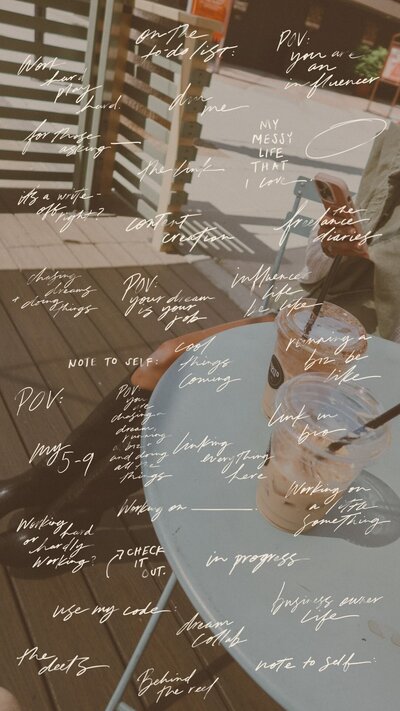 on the
to-do list:
POV:
you are
an
influencer
Work
hard
play
hard.
dm
me
for those
asking —
MY
MESSY
LIFE
THAT
I LOVE
the link
it's a write-
off
right?
content
creation
the
freelance
diaries
chasing
dreams
+ doing
things
POV:
your dream
is your
job
influencer
life
be like
NOTE TO SELF:
cool
things
coming
running a
biz be
like
POV:
POV:
you
are
chasing a
dream,
running
a biz,
and doing
all the
things
link in
bio
my
5-9
linking
everything
here
Working on ———
Working on
a
something
Working hard
or
hardly
working?
CHECK
IT
OUT.
in progress
use my code:
dream
collab
business owner
life
the
deets
Behind
the reel
note to self: